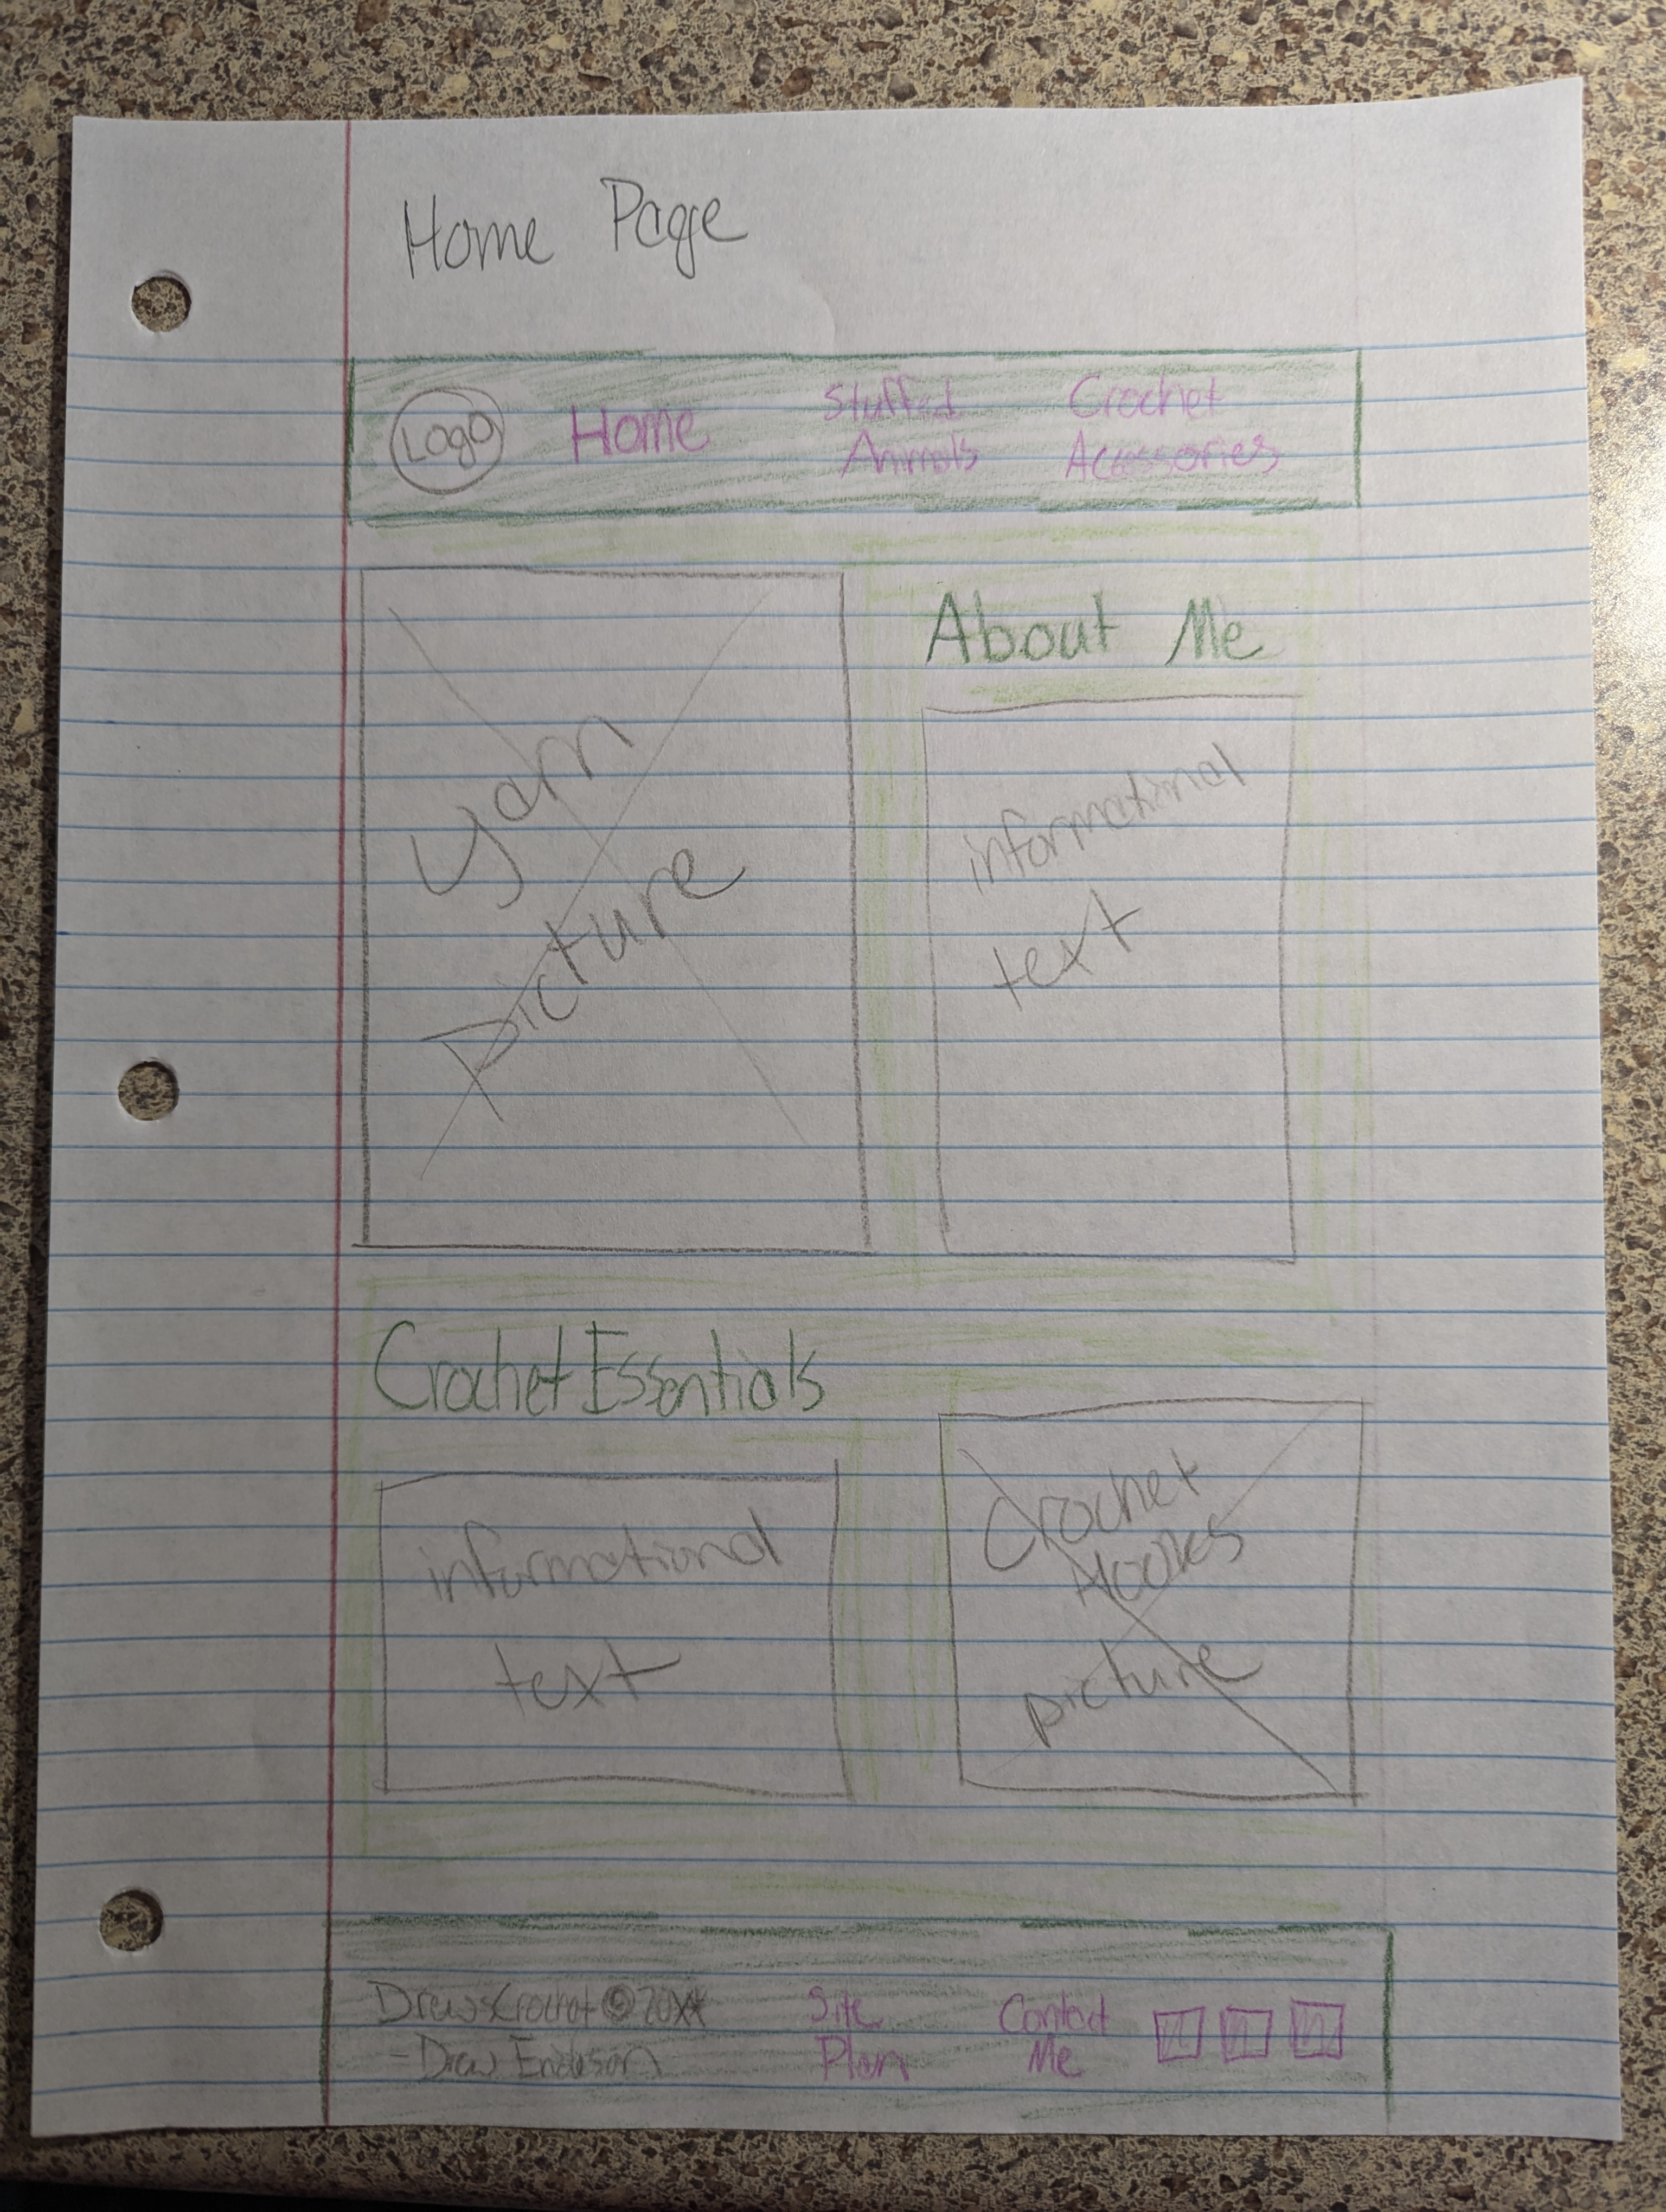 Home Page
Logo
Home
Stuffed
Animals
Crochet
Accessories
Yarn
picture
About Me
informational
text
Crochet Essentials
informational
text
Crochet
Hooks
picture
DrewsCrochet © 20XX
- Drew
Site
Plan
Contact
Me